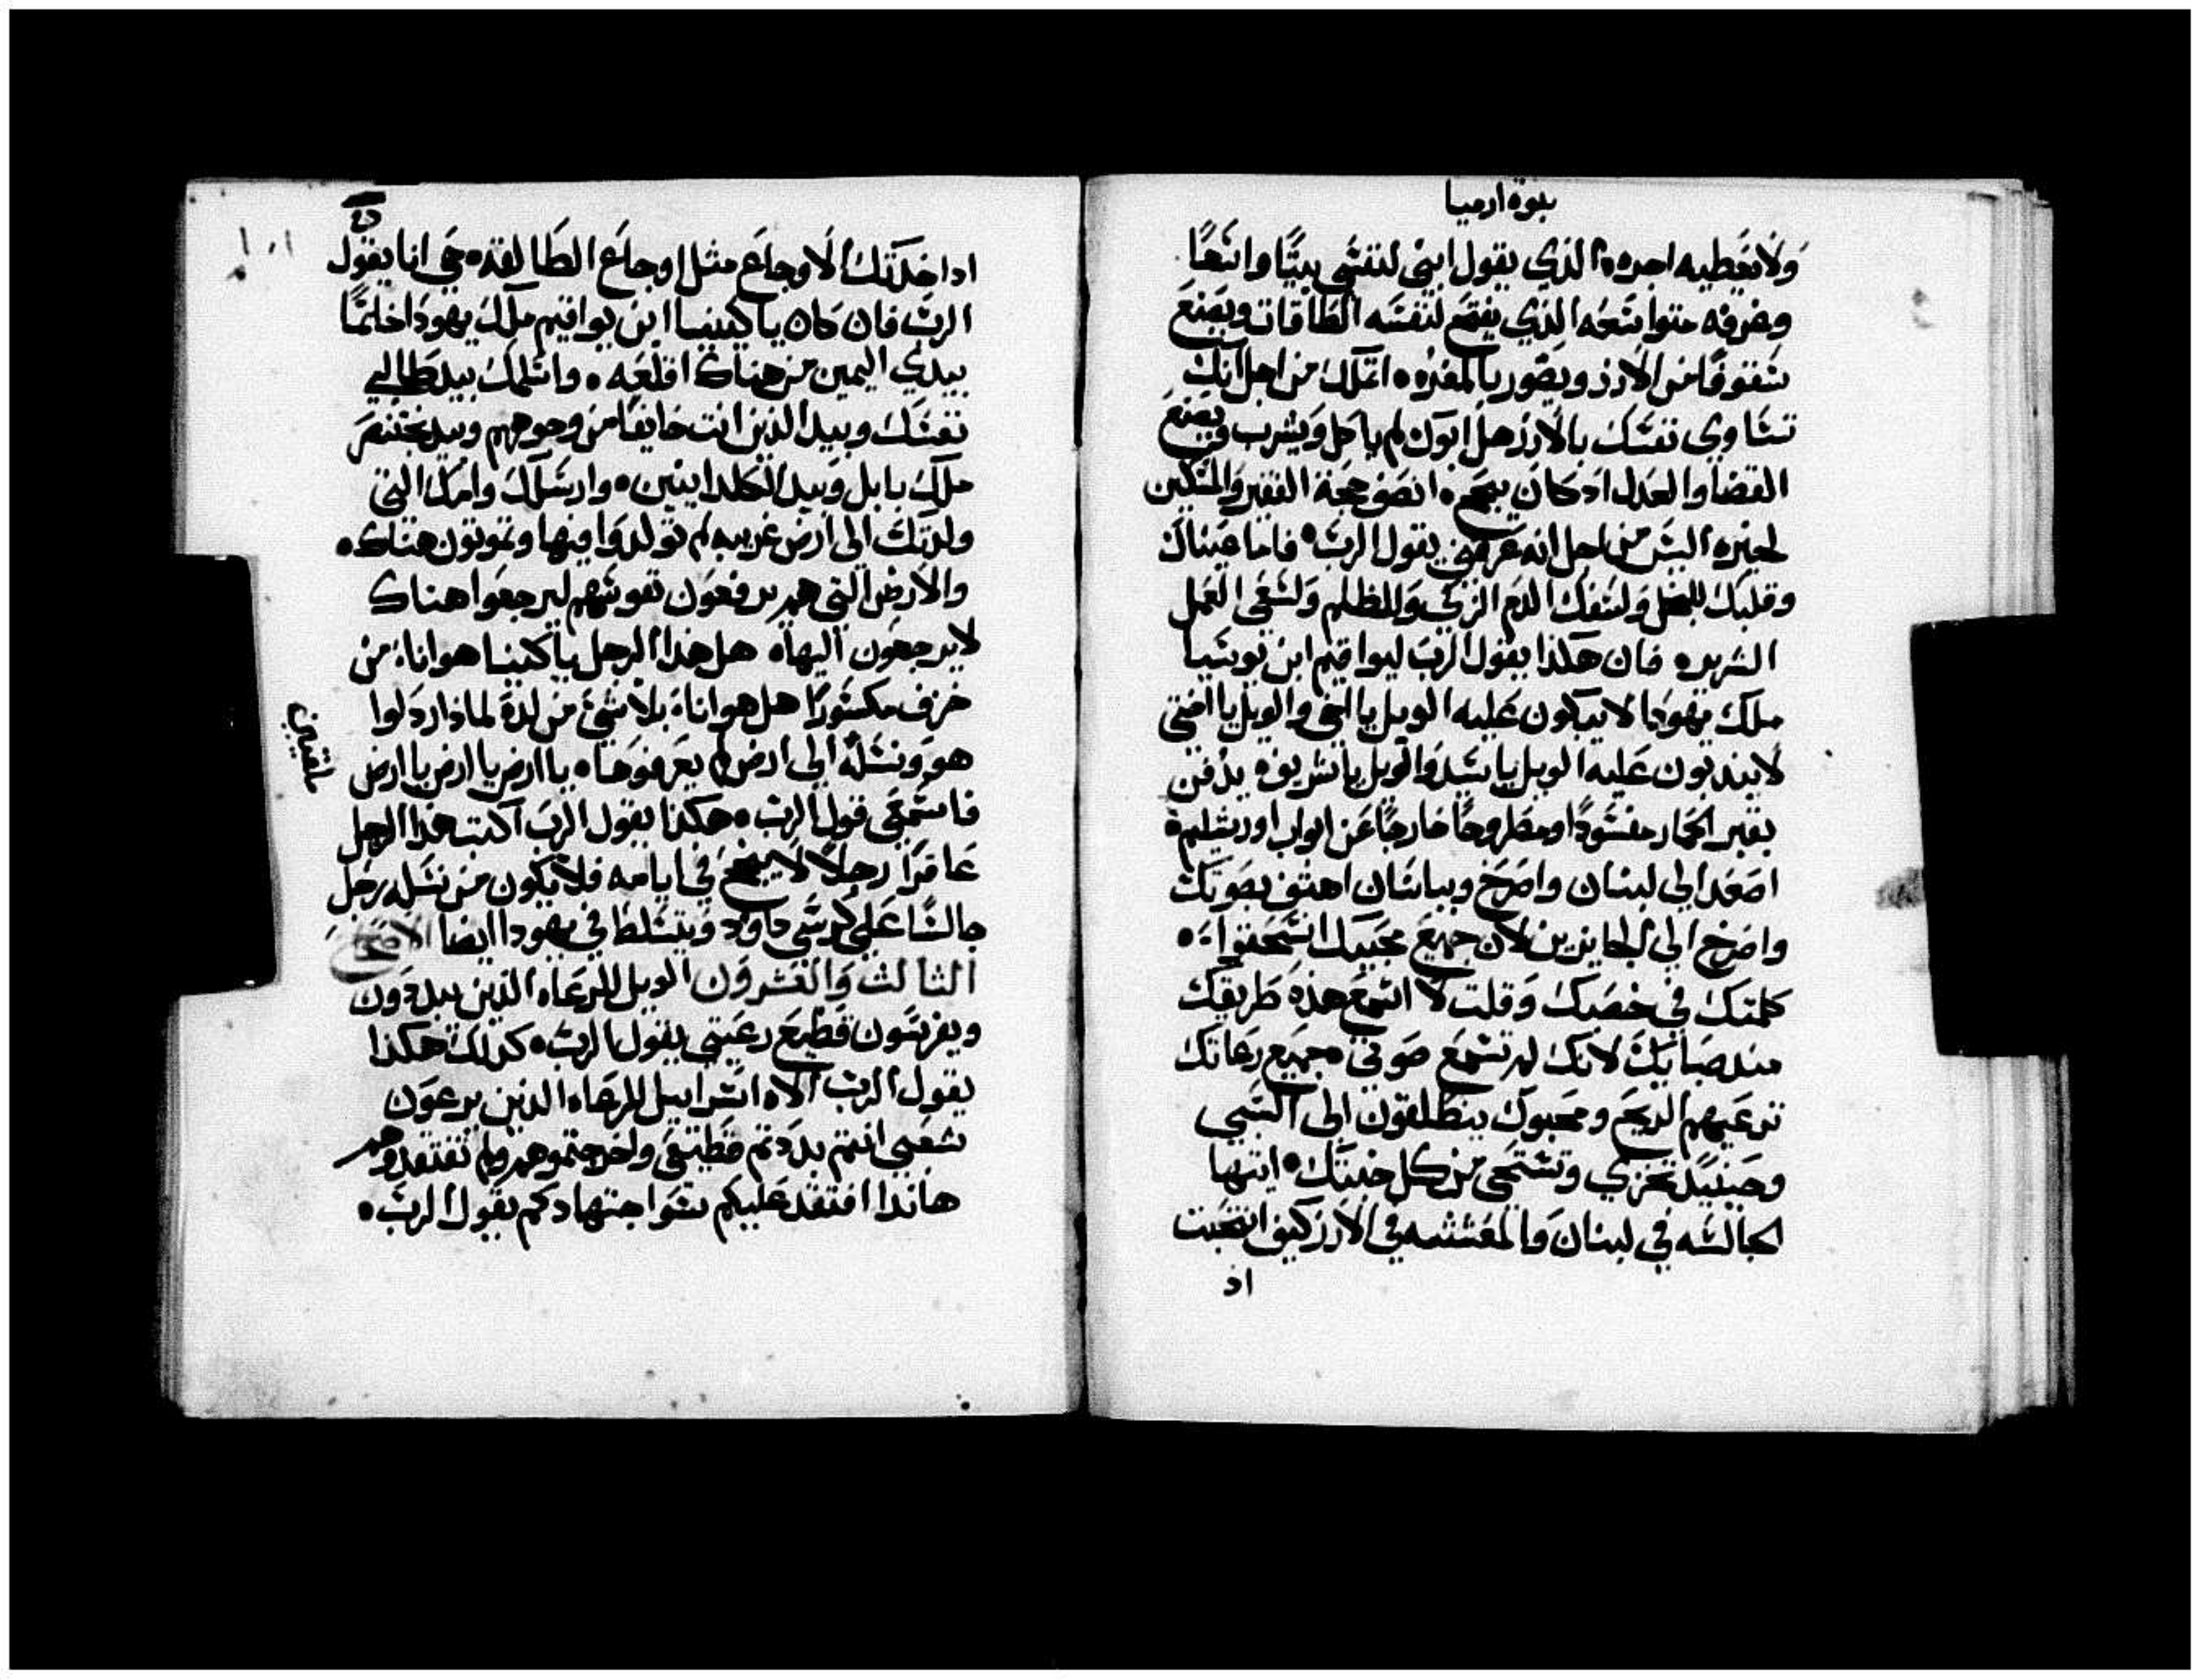 نبوة ارميا
ولا يعطيه اجره الذي يقول ابني لنفسي بيتا واسعا
وغرفه متواسعه الذي يفتح لنفسه الطاقات ويصنع
سقوفا من الارز ويصور بالمغره اتملك من اجل انك
تساوي نفسك بالارز هل ابوك لم ياكل ويشرب ويصنع
القضا والعدل اذ كان ينجح انصف حجة الفقير والمسكين
لخيره اليس من اجل انه عرفني يقول الرب فاما عيناك
وقلبك للبخل ولسفك الدم الزكي وللظلم ولسعي العمل
الشرير فان هكذا يقول الرب ليواقيم ابن يوشيا
ملك يهودا لا يبكون عليه الويل يا اخي والويل يا اختي
لا يندبون عليه الويل يا سيد والويل يا شريف يدفن
بقبر الحمار مفسودا ومطروحا خارجا عن ابواب اورشليم
اصعد الي لبنان واصرخ وبباشان اهتف بصوتك
واصرخ الي الجايزين لان جميع محبيك انسحقوا
كلمتك في خصبك وقلت لا اسمع هذه طريقك
مند صبايك لانك لم تسمع صوتي جميع رعاتك
ترعيهم الريح ومحبوك ينطلقون الي السبي
وحينيد تخزي وتستحي من كل خبثك ايتها
الجالسه في لبنان والمعششه في الارز كيف انتحبت
اذ
ادا اخدتك الاوجاع مثل اوجاع الطالقه حي انا يقول
الرب فان كان ياكينيا ابن يواقيم ملك يهودا خاتما
بيدي اليمين من هناك اقلعه واسلمك بيد طالبي
نفسك وبيد الذين انت خايفا من وجوههم وبيد بختنصر
ملك بابل وبيد الكلدانيين وارسلك وامك التي
ولدتك الي ارض غريبه لم تولدوا فيها وتموتون هناك
والارض التي هم يرفعون نفوسهم ليرجعوا هناك
لا يرجعون اليها هل هذا الرجل ياكينيا هو اناء من
خزف مكسورا هل هو اناء بلا شي من لدة لماذا ردلوا
هو ونسله الي ارض لم يعرفوها يا ارض يا ارض يا ارض
فاسمعي قول الرب هكذا يقول الرب اكتب هذا الرجل
عاقرا رجلا لا ينجح في ايامه فلا يكون من نسله رجل
جالسا علي كرسي داود ويتسلط في يهودا ايضا الاصحاح
الثالث والعشرون الويل للرعاه الذين يبددون
ويفرسون قطيع رعيتي يقول الرب كذلك هكذا
يقول الرب الاه اسراييل للرعاه الذين يرعون
شعبي انتم بددتم قطيعي واخرجتموهم ولم تفتقدوهم
هاندا افتقد عليكم سوا جتهادكم يقول الرب